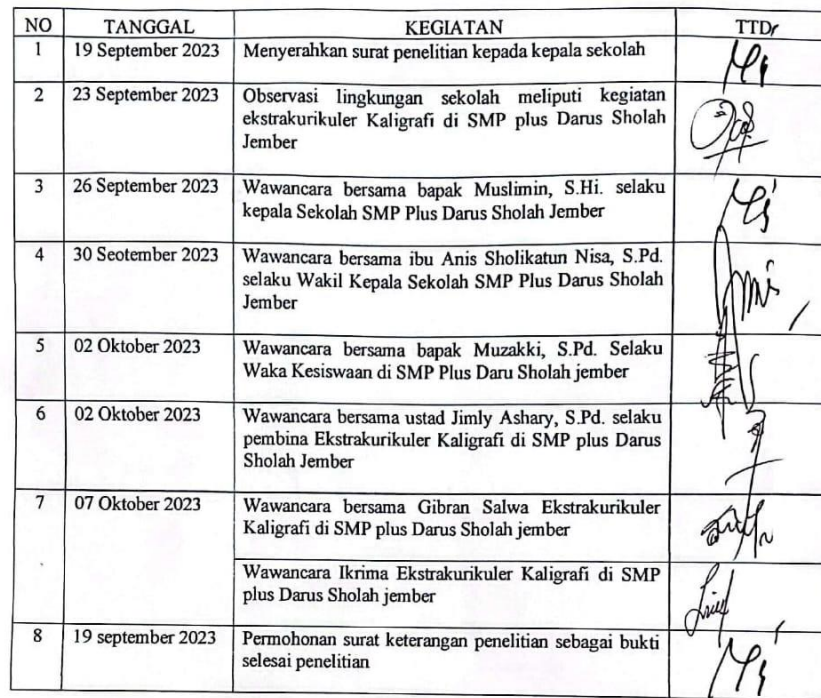 NO TANGGAL KEGIATAN TTD
1 19 September 2023 Menyerahkan surat penelitian kepada kepala sekolah
2 23 September 2023 Observasi lingkungan sekolah meliputi kegiatan
ekstrakurikuler Kaligrafi di SMP plus Darus Sholah
Jember
3 26 September 2023 Wawancara bersama bapak Muslimin, S.Hi. selaku
kepala Sekolah SMP Plus Darus Sholah Jember
4 30 Seotember 2023 Wawancara bersama ibu Anis Sholikatun Nisa, S.Pd.
selaku Wakil Kepala Sekolah SMP Plus Darus Sholah
Jember
5 02 Oktober 2023 Wawancara bersama bapak Muzakki, S.Pd. Selaku
Waka Kesiswaan di SMP Plus Daru Sholah jember
6 02 Oktober 2023 Wawancara bersama ustad Jimly Ashary, S.Pd. selaku
pembina Ekstrakurikuler Kaligrafi di SMP plus Darus
Sholah Jember
7 07 Oktober 2023 Wawancara bersama Gibran Salwa Ekstrakurikuler
Kaligrafi di SMP plus Darus Sholah jember
Wawancara Ikrima Ekstrakurikuler Kaligrafi di SMP
plus Darus Sholah jember
8 19 september 2023 Permohonan surat keterangan penelitian sebagai bukti
selesai penelitian